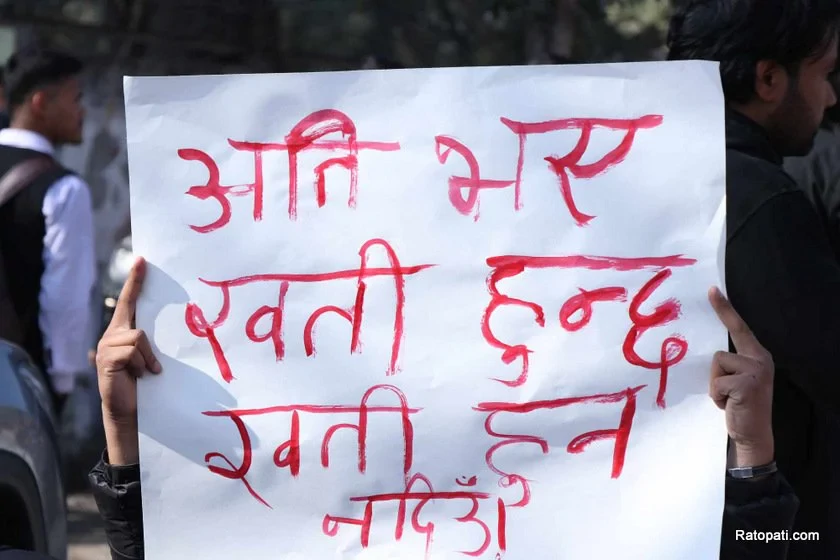 अति भए
खती हुन्छ
खती हुन
नदिउँ।
Ratopati.com